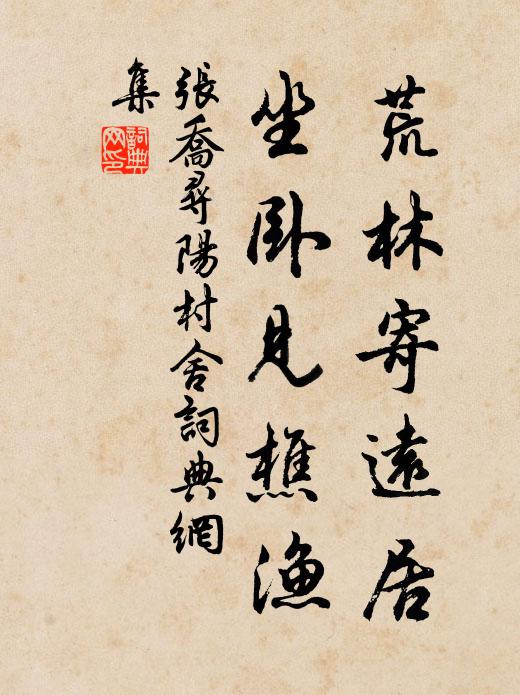 荒林寄遠居
坐卧見樵漁
張喬尋陽村舍詞典網
集
詞典
网印